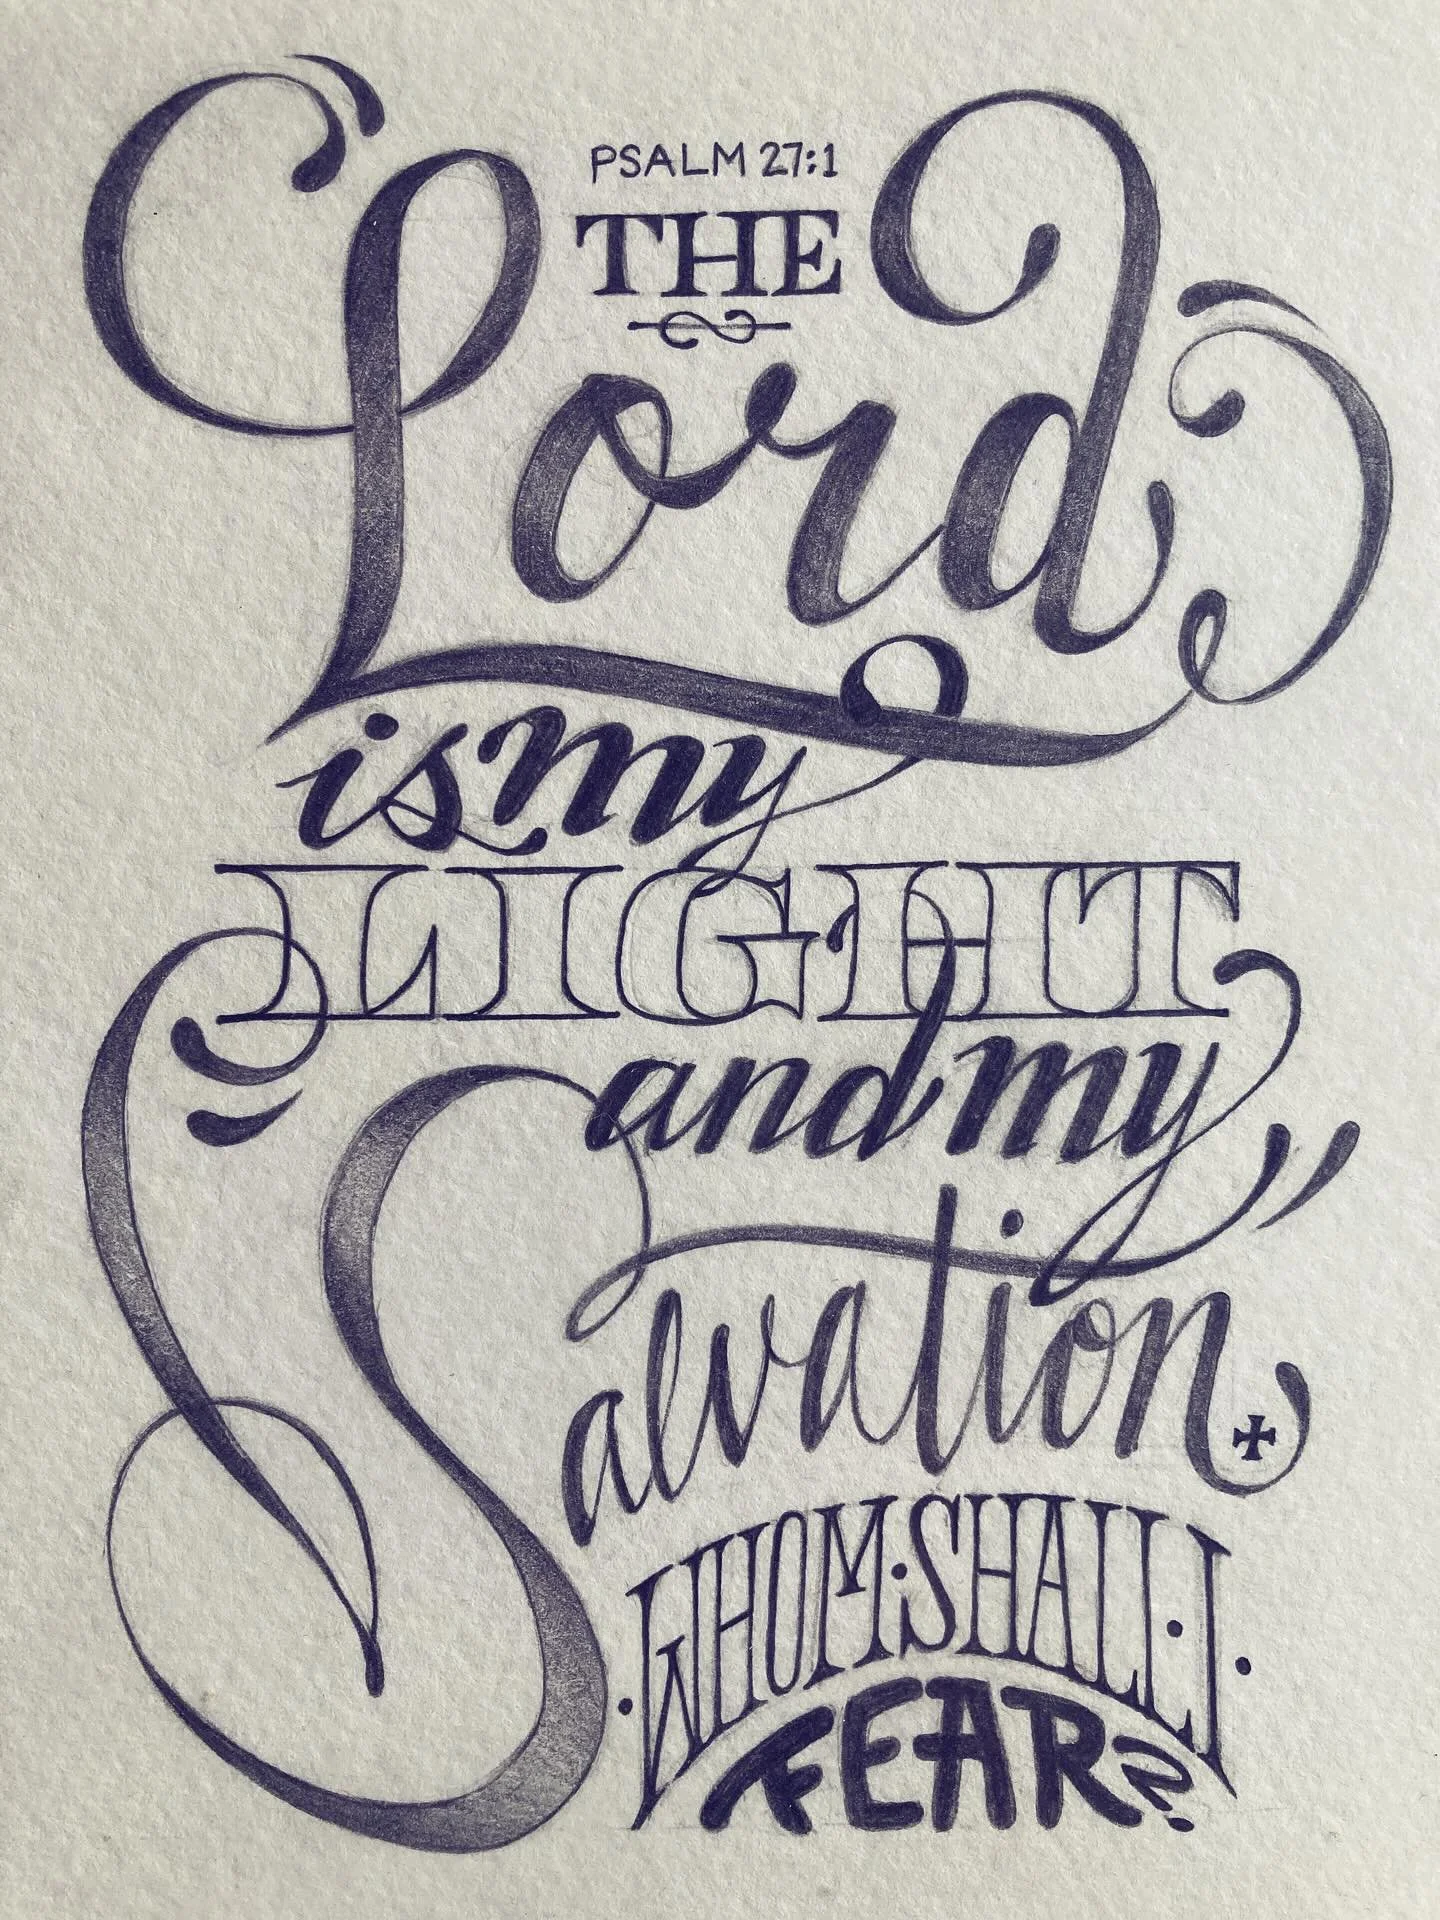 PSALM 27:1
THE
Lord
is my
LIGHT
and my
Salvation.
WHOM·SHALL·I
FEAR?